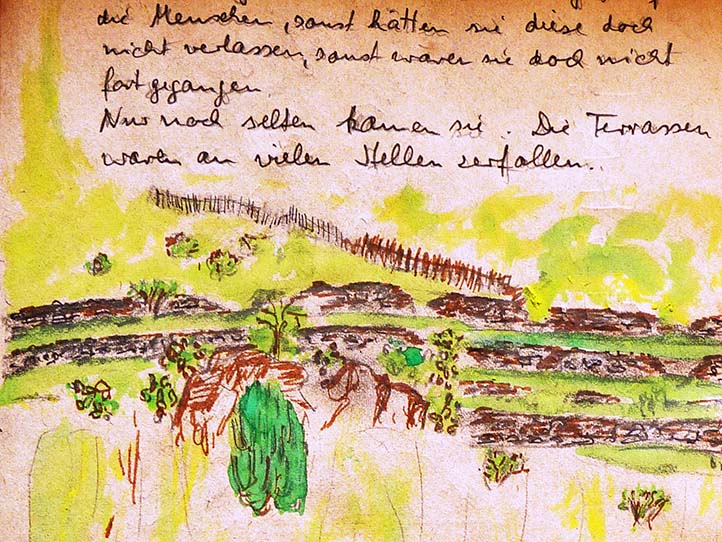 die Menschen, sonst hätten sie diese doch
nicht verlassen, sonst waren sie doch nicht
fortgegangen
Nur noch selten kamen sie. Die Terrassen
waren an vielen Stellen zerfallen..